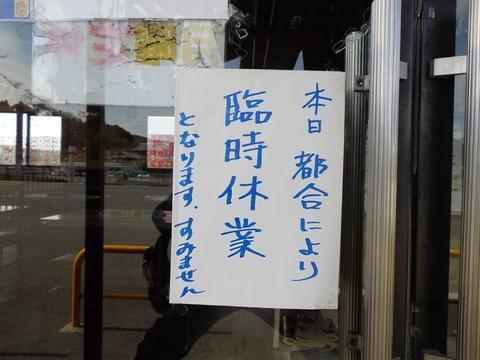 本日 都合により
臨時休業
となります。すみません